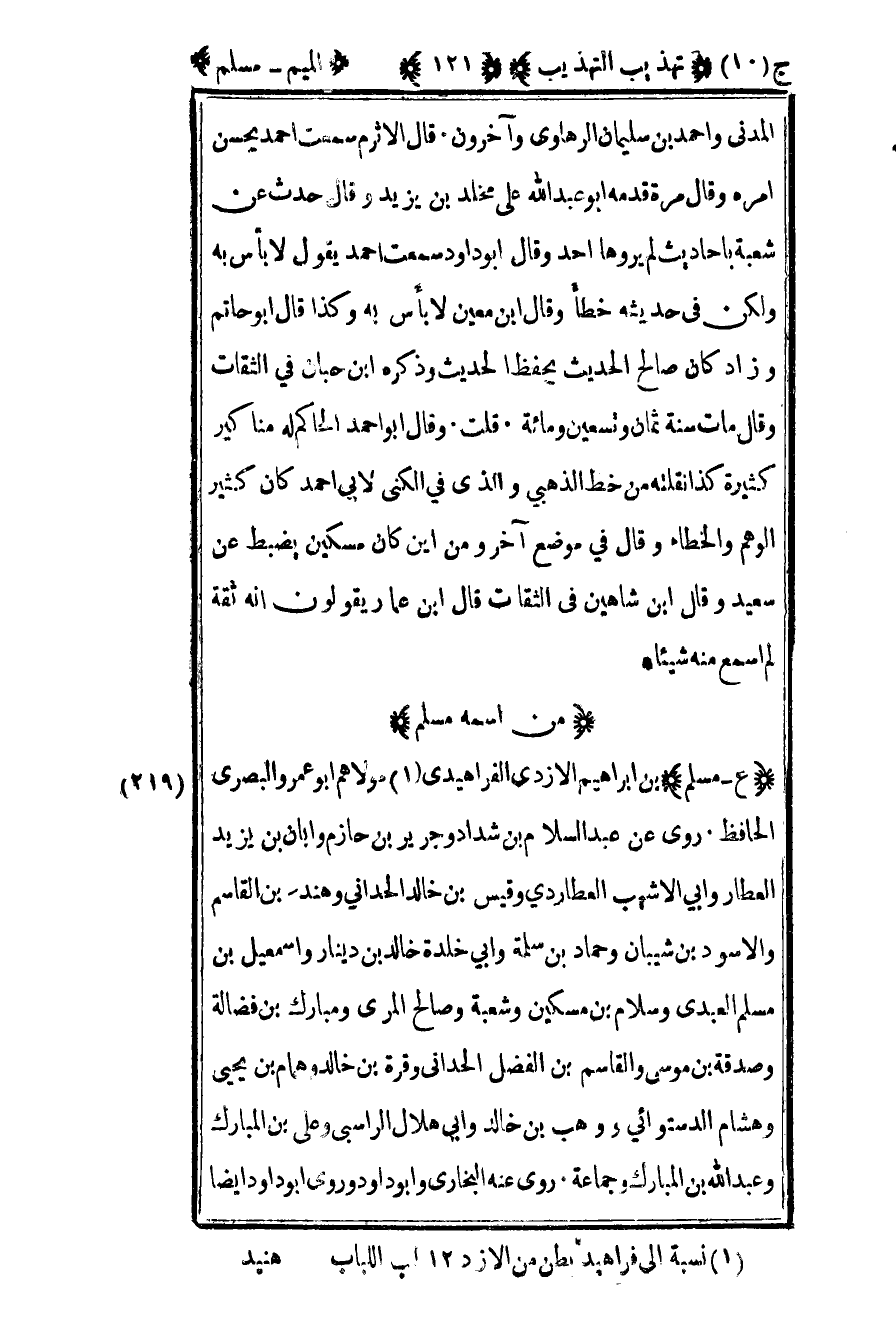 ج (١٠) ﴿ تهذيب التهذيب ﴾ ﴿ ١٢١ ﴾ ﴿ الميم ـ مسلم ﴾
المدنى واحمد بن سليمان الرهاوى وآخرون ٠ قال الاثرم سمعت احمد يحسن
امره وقال مرة قدمه ابو عبد الله على مخلد بن يزيد وقال حدث عن
شعبة باحاديث لم يروها احد وقال ابو داود سمعت احمد يقول لا بأس به
ولكن فى حديثه خطأ وقال ابن معين لا بأس به وكذا قال ابو حاتم
وزاد كان صالح الحديث يحفظ الحديث وذكره ابن حبان في الثقات
وقال مات سنة ثمان وتسعين ومائة ٠ قلت ٠ وقال ابو احمد الحاكم له مناكير
كثيرة كذا نقلته من خط الذهبي والذى في الكنى لابي احمد كان كثير
الوهم والخطاء وقال في موضع آخر ومن اين كان مسكين يضبط عن
سعيد وقال ابن شاهين فى الثقات قال ابن عمار يقولون انه ثقة
لم اسمع منه شيئا
﴿ من اسمه مسلم ﴾
﴿ ع ـ مسلم ﴾ بن ابراهيم الازدى الفراهيدى (١) مولاهم ابو عمر والبصرى (٢١٩)
الحافظ ٠ روى عن عبد السلام بن شداد وجرير بن حازم وابان بن يزيد
العطار وابي الاشهب العطاردي وقيس بن خالد الحداني وهند بن القاسم
والاسود بن شيبان وحماد بن سلمة وابي خلدة خالد بن دينار واسمعيل بن
مسلم العبدى وسلام بن مسكين وشعبة وصالح المرى ومبارك بن فضالة
وصدقة بن موسى والقاسم بن الفضل الحدانى وقرة بن خالد وهمام بن يحيى
وهشام الدستوائي ووهب بن خالد وابي هلال الراسبى وعلى بن المبارك
وعبد الله بن المبارك وجماعة ٠ روى عنه البخارى وابو داود وروى ابو داود ايضا
(١) نسبة الى فراهيد بطن من الازد ١٢ لب اللباب هنيد